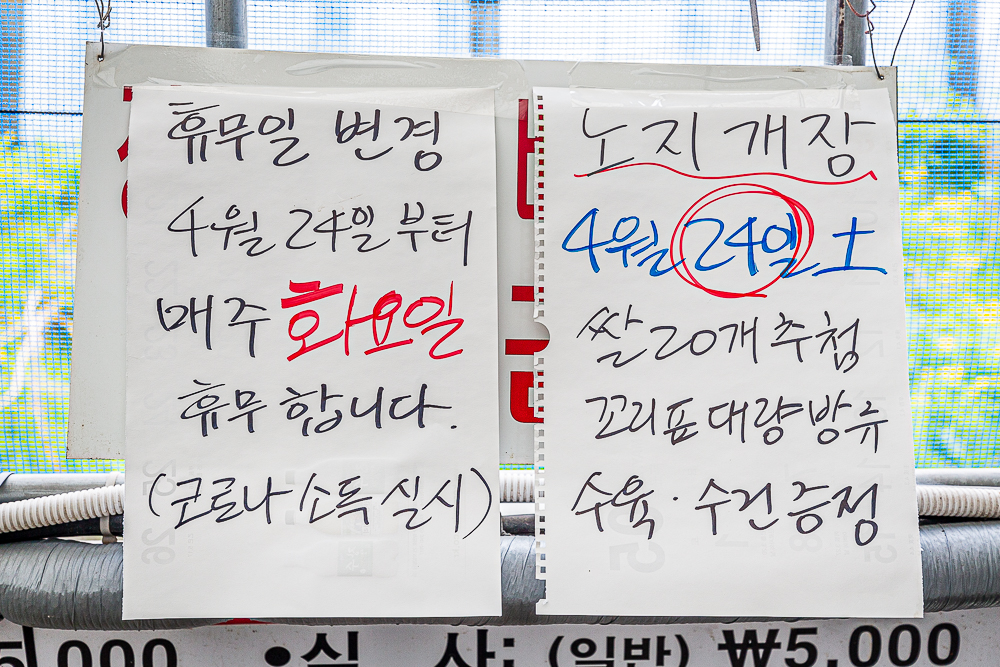 휴무일 변경
4월 24일 부터
매주 화요일
휴무 합니다.
(코로나 소독 실시)
노지 개장
4월 24일 土
쌀 20개 추첨
꼬리표 대량 방류
수육 · 수건 증정
5,000
•식 사: (일반) ₩5,000